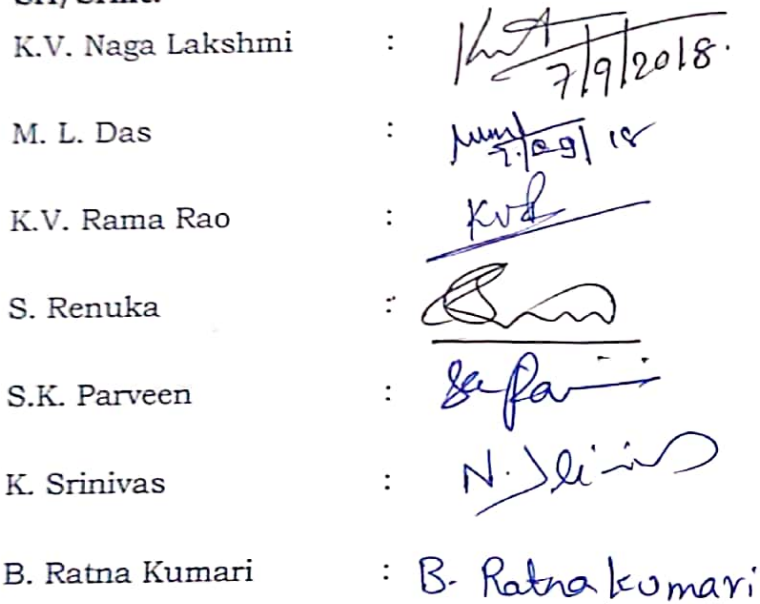 K.V. Naga Lakshmi :
7/9/2018.
M. L. Das :
7/09/18
K.V. Rama Rao : KVR
S. Renuka :
S.K. Parveen :
K. Srinivas : N.
B. Ratna Kumari : B. Ratna kumari